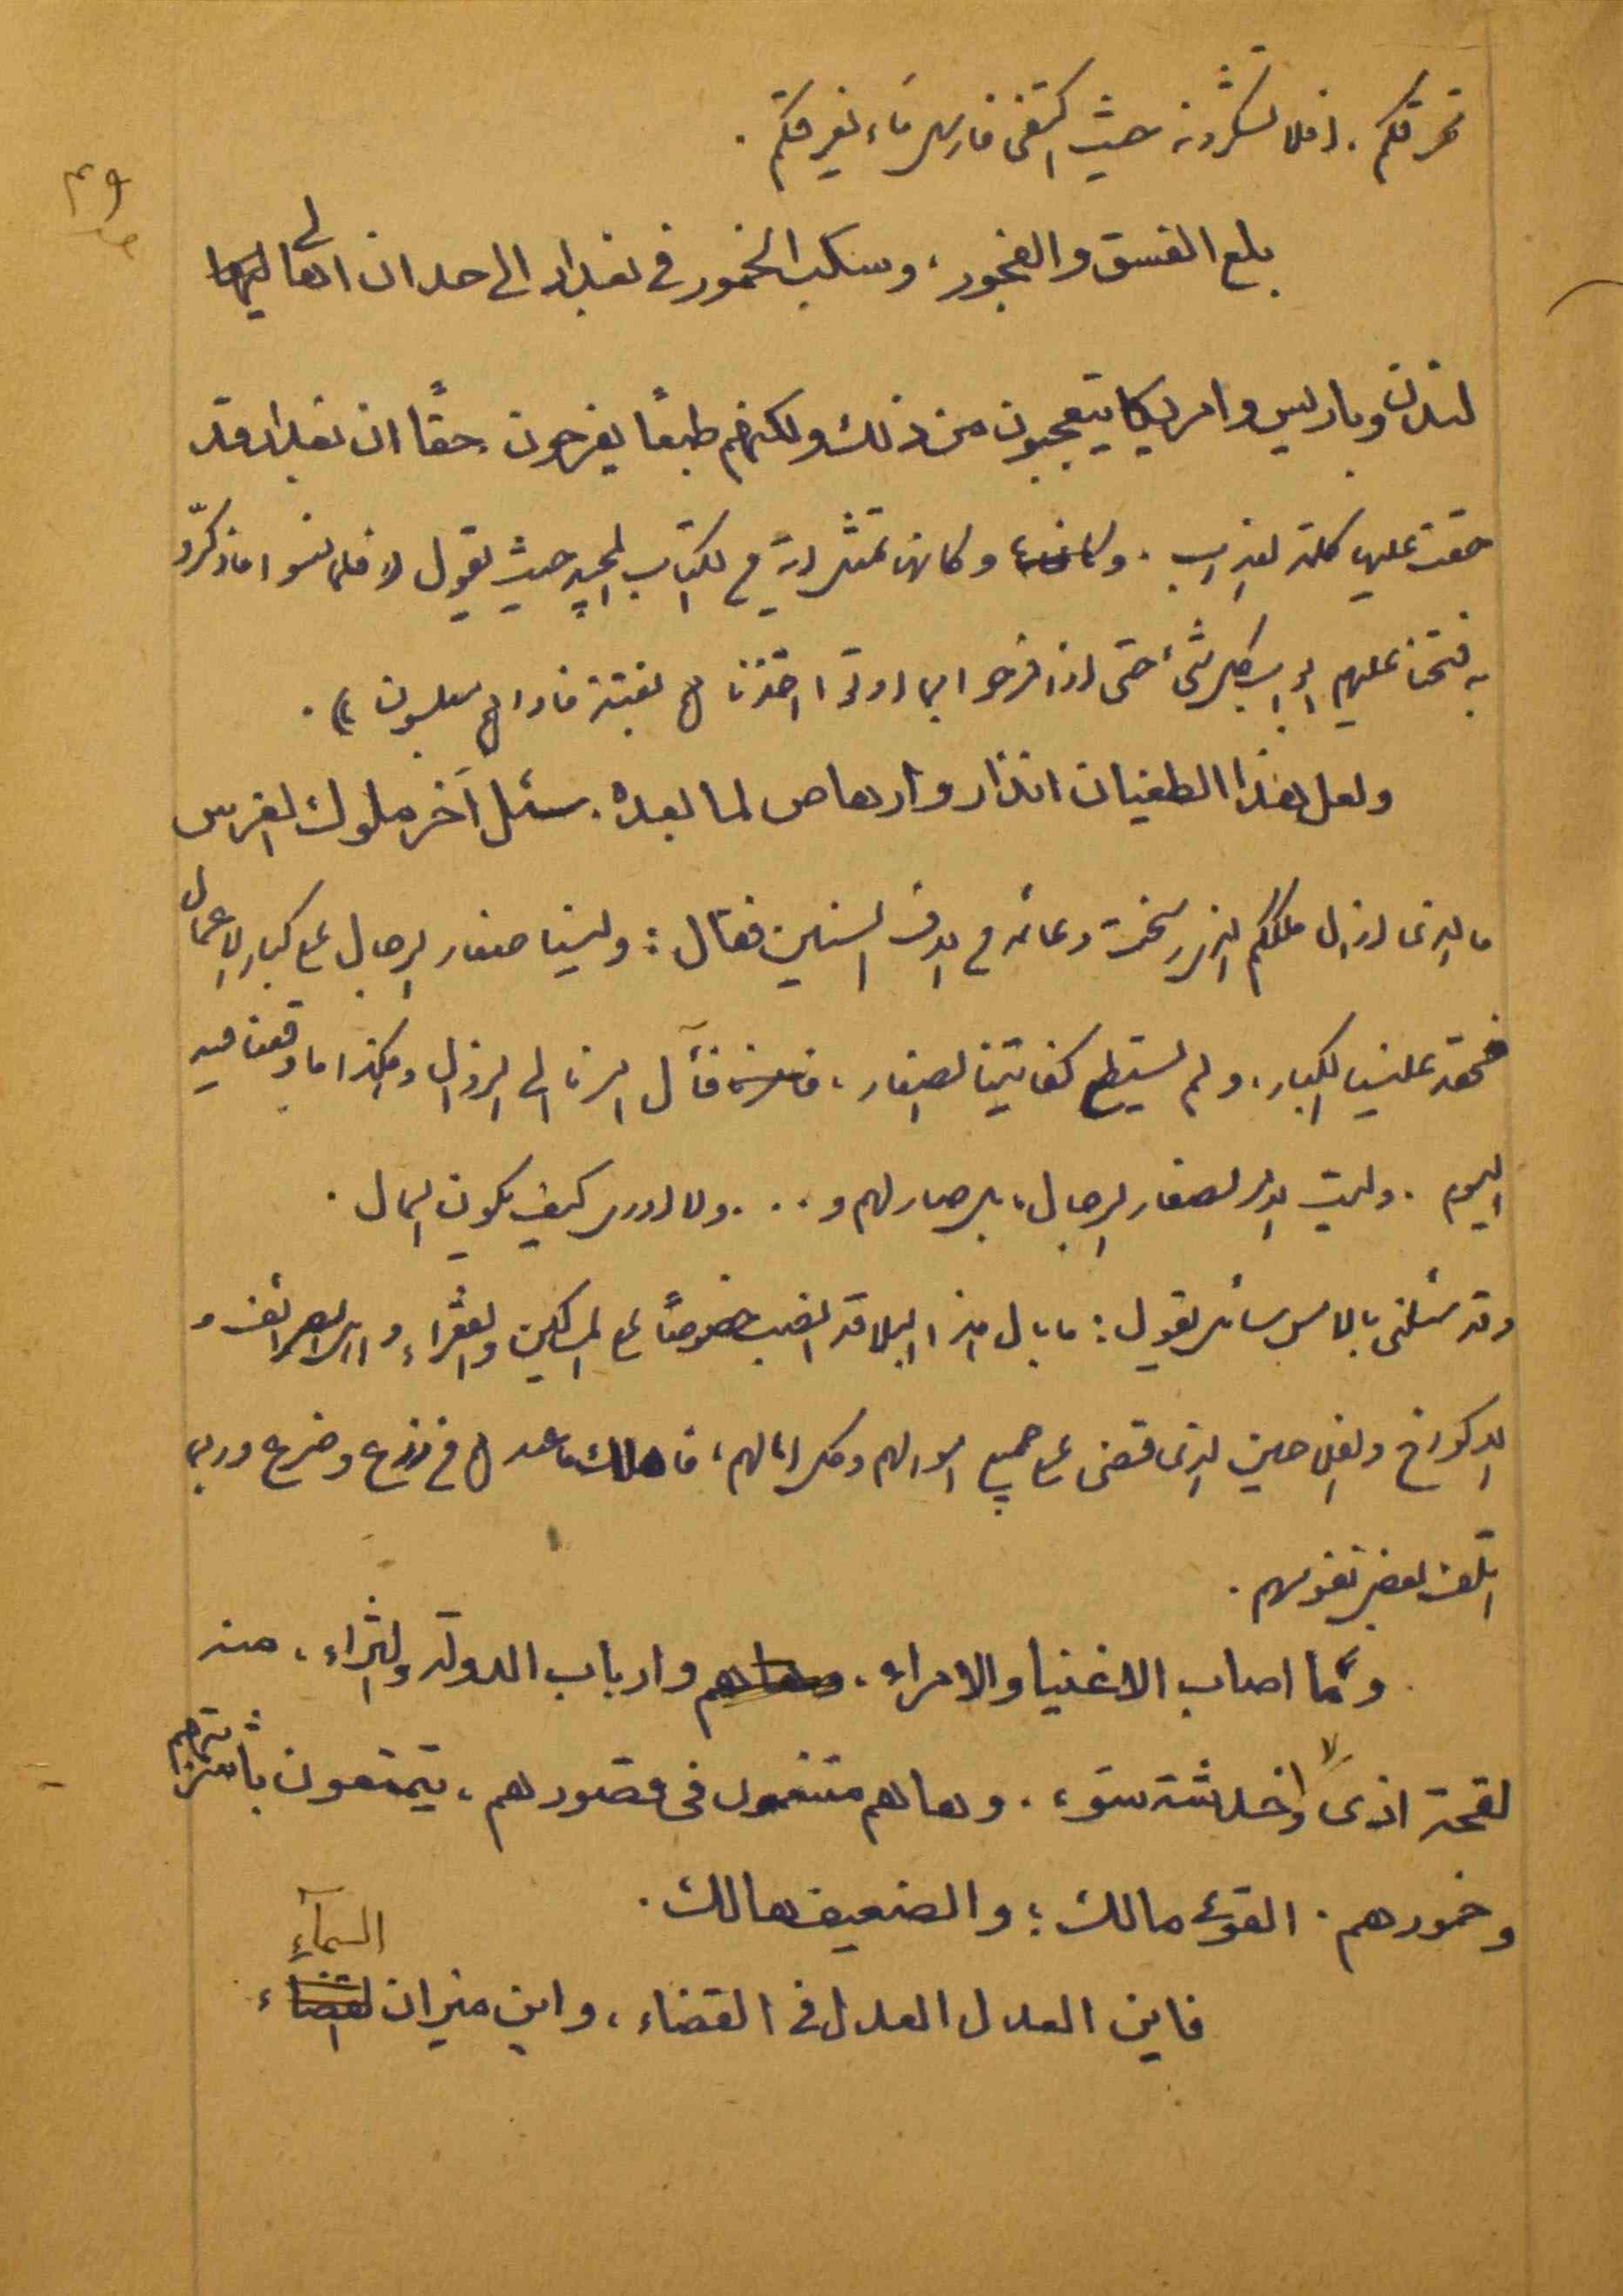 تحرقكم. افلا تشكرونه حيث اكتفى فارسل ماء يغرقكم.
بلغ الفسق والفجور، وسكب الخمور في بغداد الى حد ان اهالي
لندن وباريس وامريكا يتعجبون من ذلك ولكنهم طبعًا يفرحون. حقًا ان بغداد قد
حقت عليها كلمة العذاب. وكانها تمثل آية في الكتاب المجيد حيث يقول (( فلما نسوا ما ذكّروا
به فتحنا عليهم ابواب كل شئ حتى اذا فرحوا بما اوتوا اخذناهم بغتة فاذا هم مبلسون )).
ولعل هذا الطغيان انذار وارهاص لما بعده. سئل آخر ملوك الفرس
ما الذي ازال ملككم الذي رسخت دعائمه في الوف السنين فقال: ولينا صغار الرجال على كبار الاعمال
فحقد علينا الكبار، ولم يستطع كفايتنا الصغار، فآل امرنا الى الزوال وهكذا ما وقعنا فيه
اليوم. وليت الامر لصغار الرجال، بل صار لهم و... ولا ادري كيف يكون المآل.
وقد سئلني بالامس سائل يقول: ما بال هذا البلا قد انصب خصوصًا على المساكين والفقراء واهل الصرائف و
الاكواخ والفلاحين الذي قضى على جميع اموالهم وكل امالهم، فاهلك ما عندهم من زرع وضرع وربما
اتلف بعض نفوسهم.
وما اصاب الاغنيا والامراء، وارباب الدولة والثراء، منه
لفحة اذىً ولا خدشة سوء. وها هم متنعمون في قصورهم، يتمتعون بآثامهم
وخمورهم. القوي مالك؛ والضعيف هالك.
فاين العدل العدل في القضاء، واين ميزان السمآء